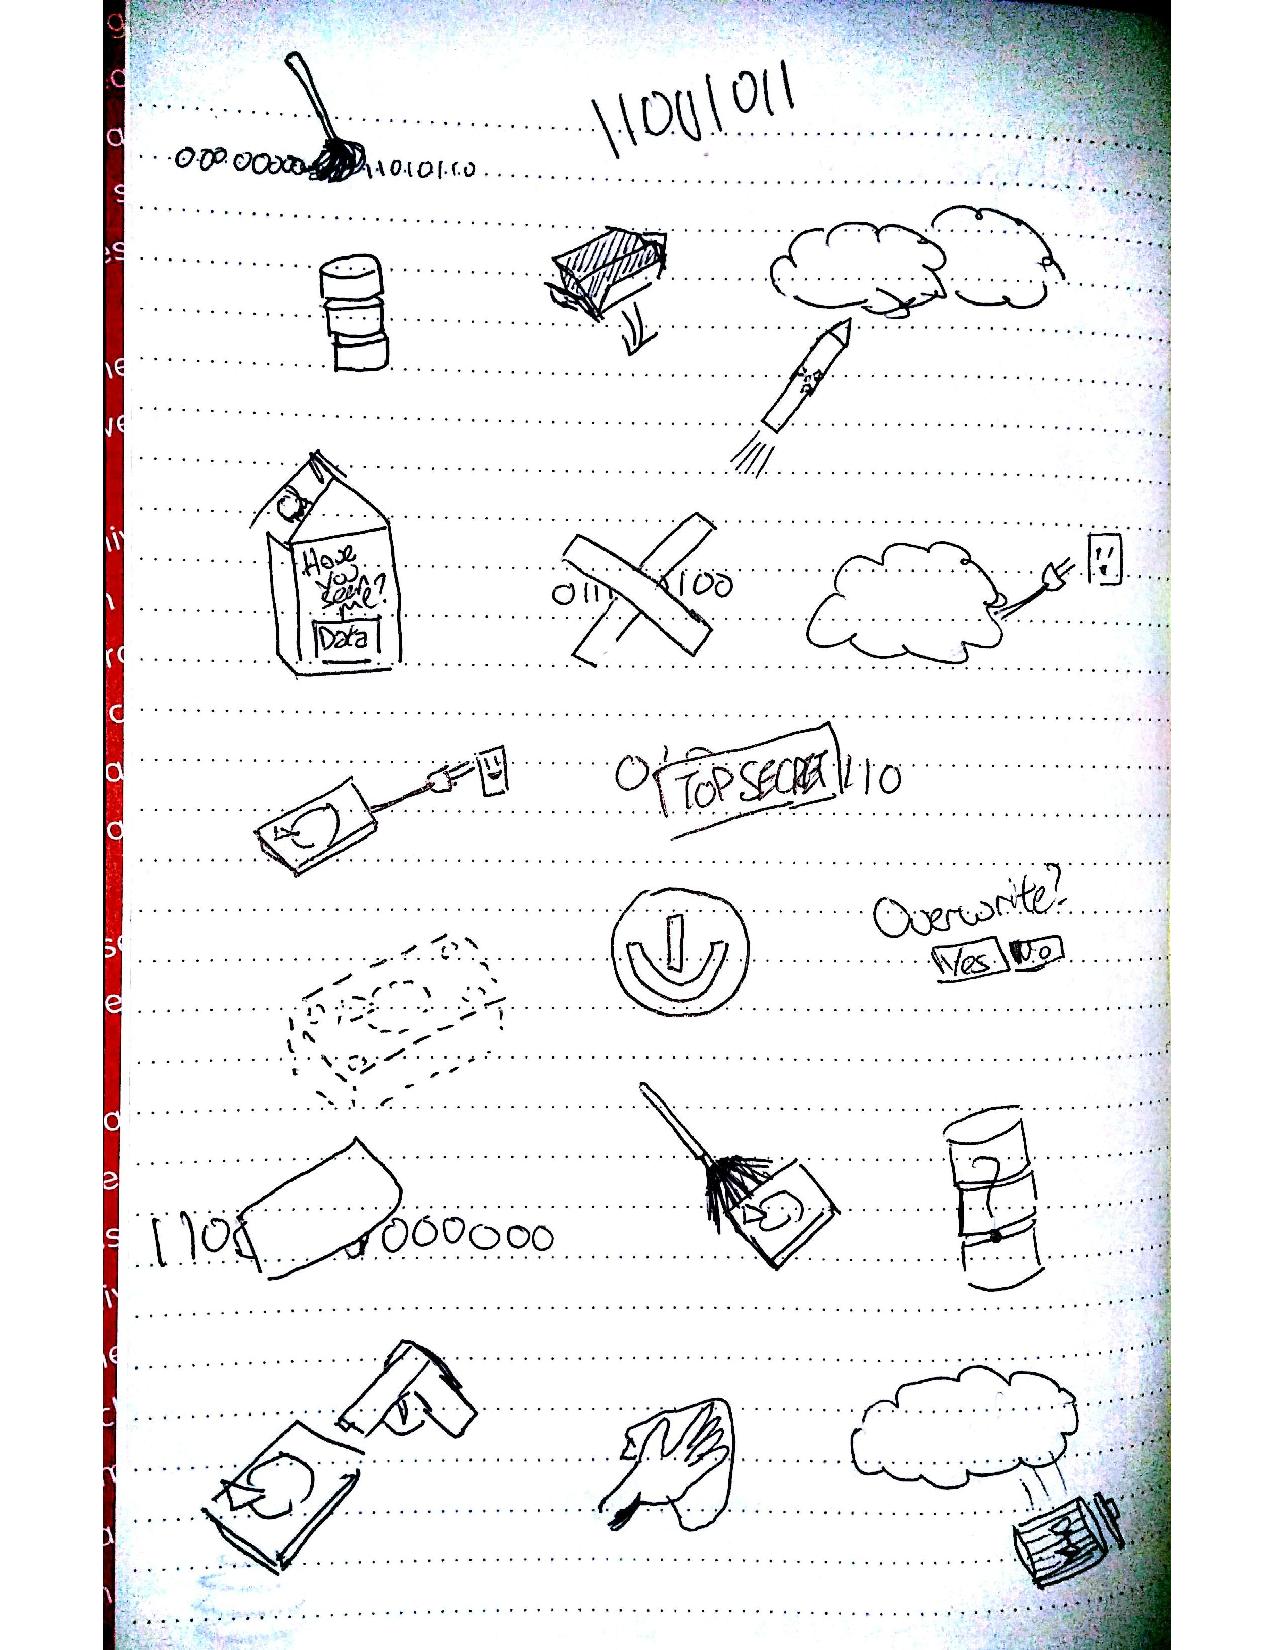 11001011
000.00000 110101.10
Have
you
seen?
me?
Data
0111 1100
0 TOP SECRET 110
Overwrite?
Yes No
110 000000
?